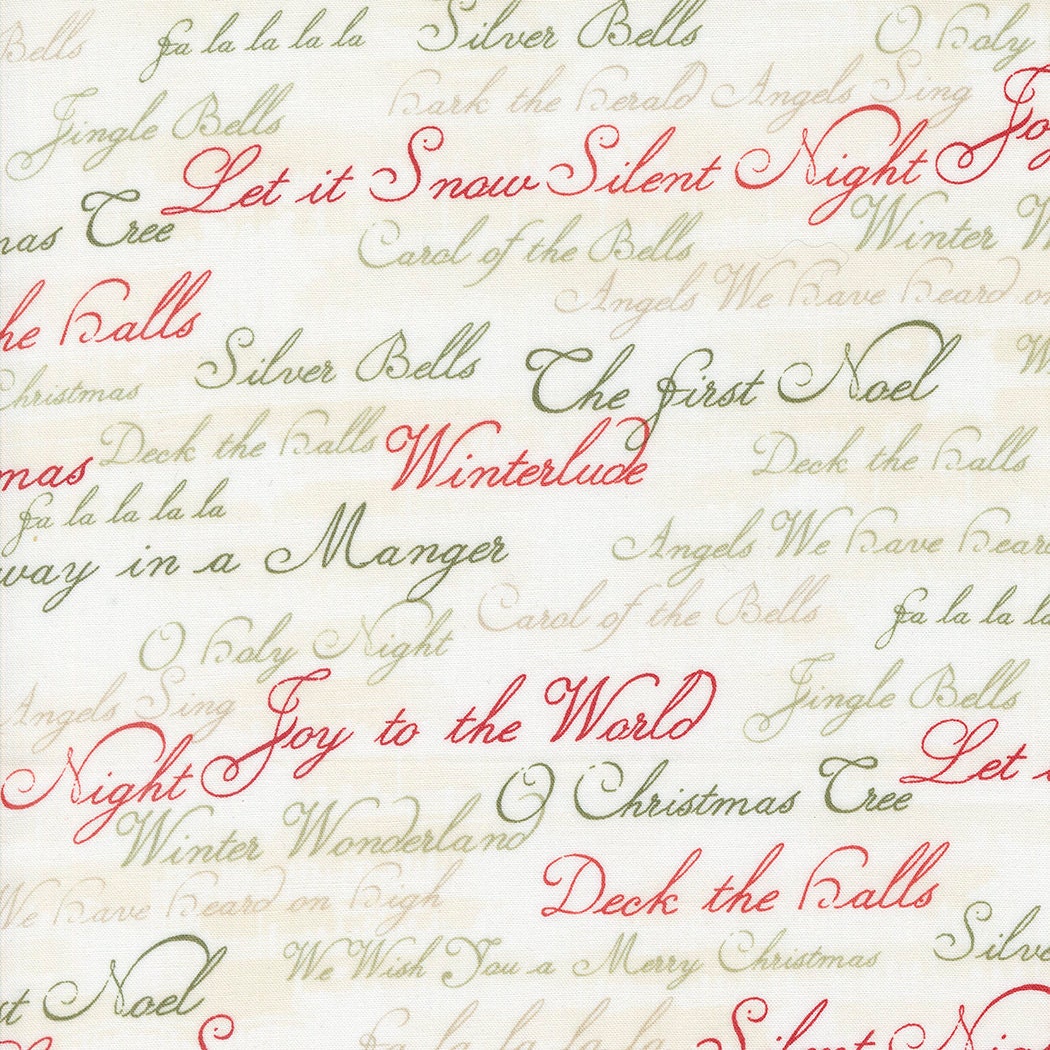 Bells fa la la la la Silver Bells O Holy
Hark the Herald Angels Sing
Jingle Bells Joy
Let it Snow Silent Night
mas Tree Carol of the Bells Winter W
Angels We Have Heard on
he Halls
Silver Bells The First Noel W
Christmas
mas Deck the Halls Winterlude Deck the Halls
fa la la la la
way in a Manger Angels We Have Heard
Carol of the Bells fa la la la
O Holy Night
Angels Sing Joy to the World Jingle Bells
Night O Christmas Tree Let i
Winter Wonderland
We Have Heard on High Deck the Halls
We Wish You a Merry Christmas Silve
st Noel
S fa la la la la Silent Night